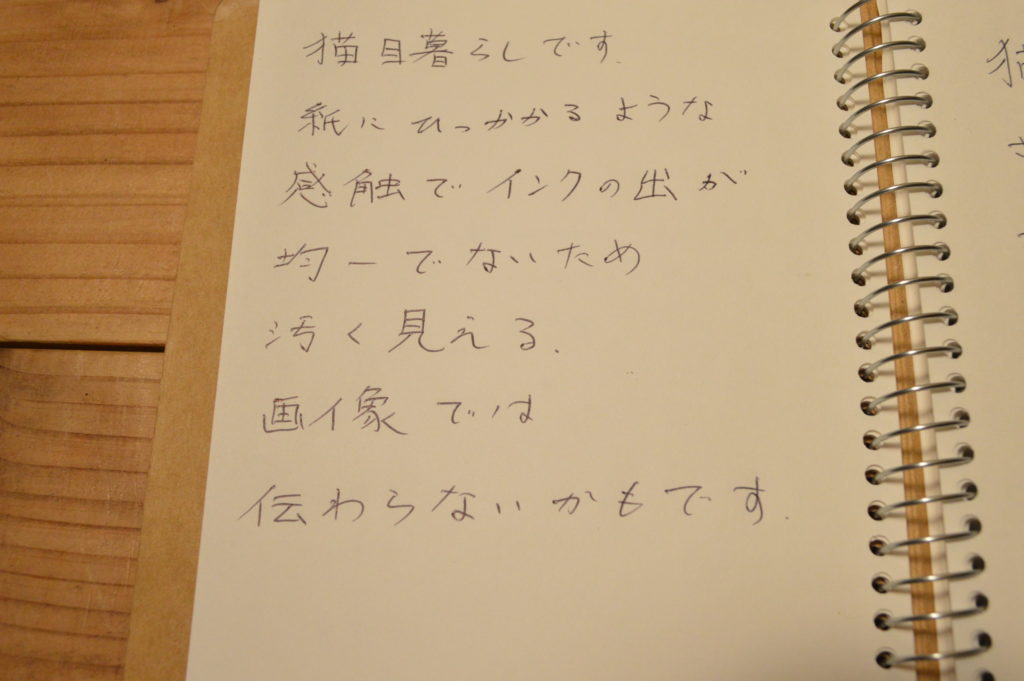 猫日暮らしです.
紙に ひっかかる ような
感触で インクの出が
均一でないため
汚く見える.
画像では
伝わらないかもです.
猫